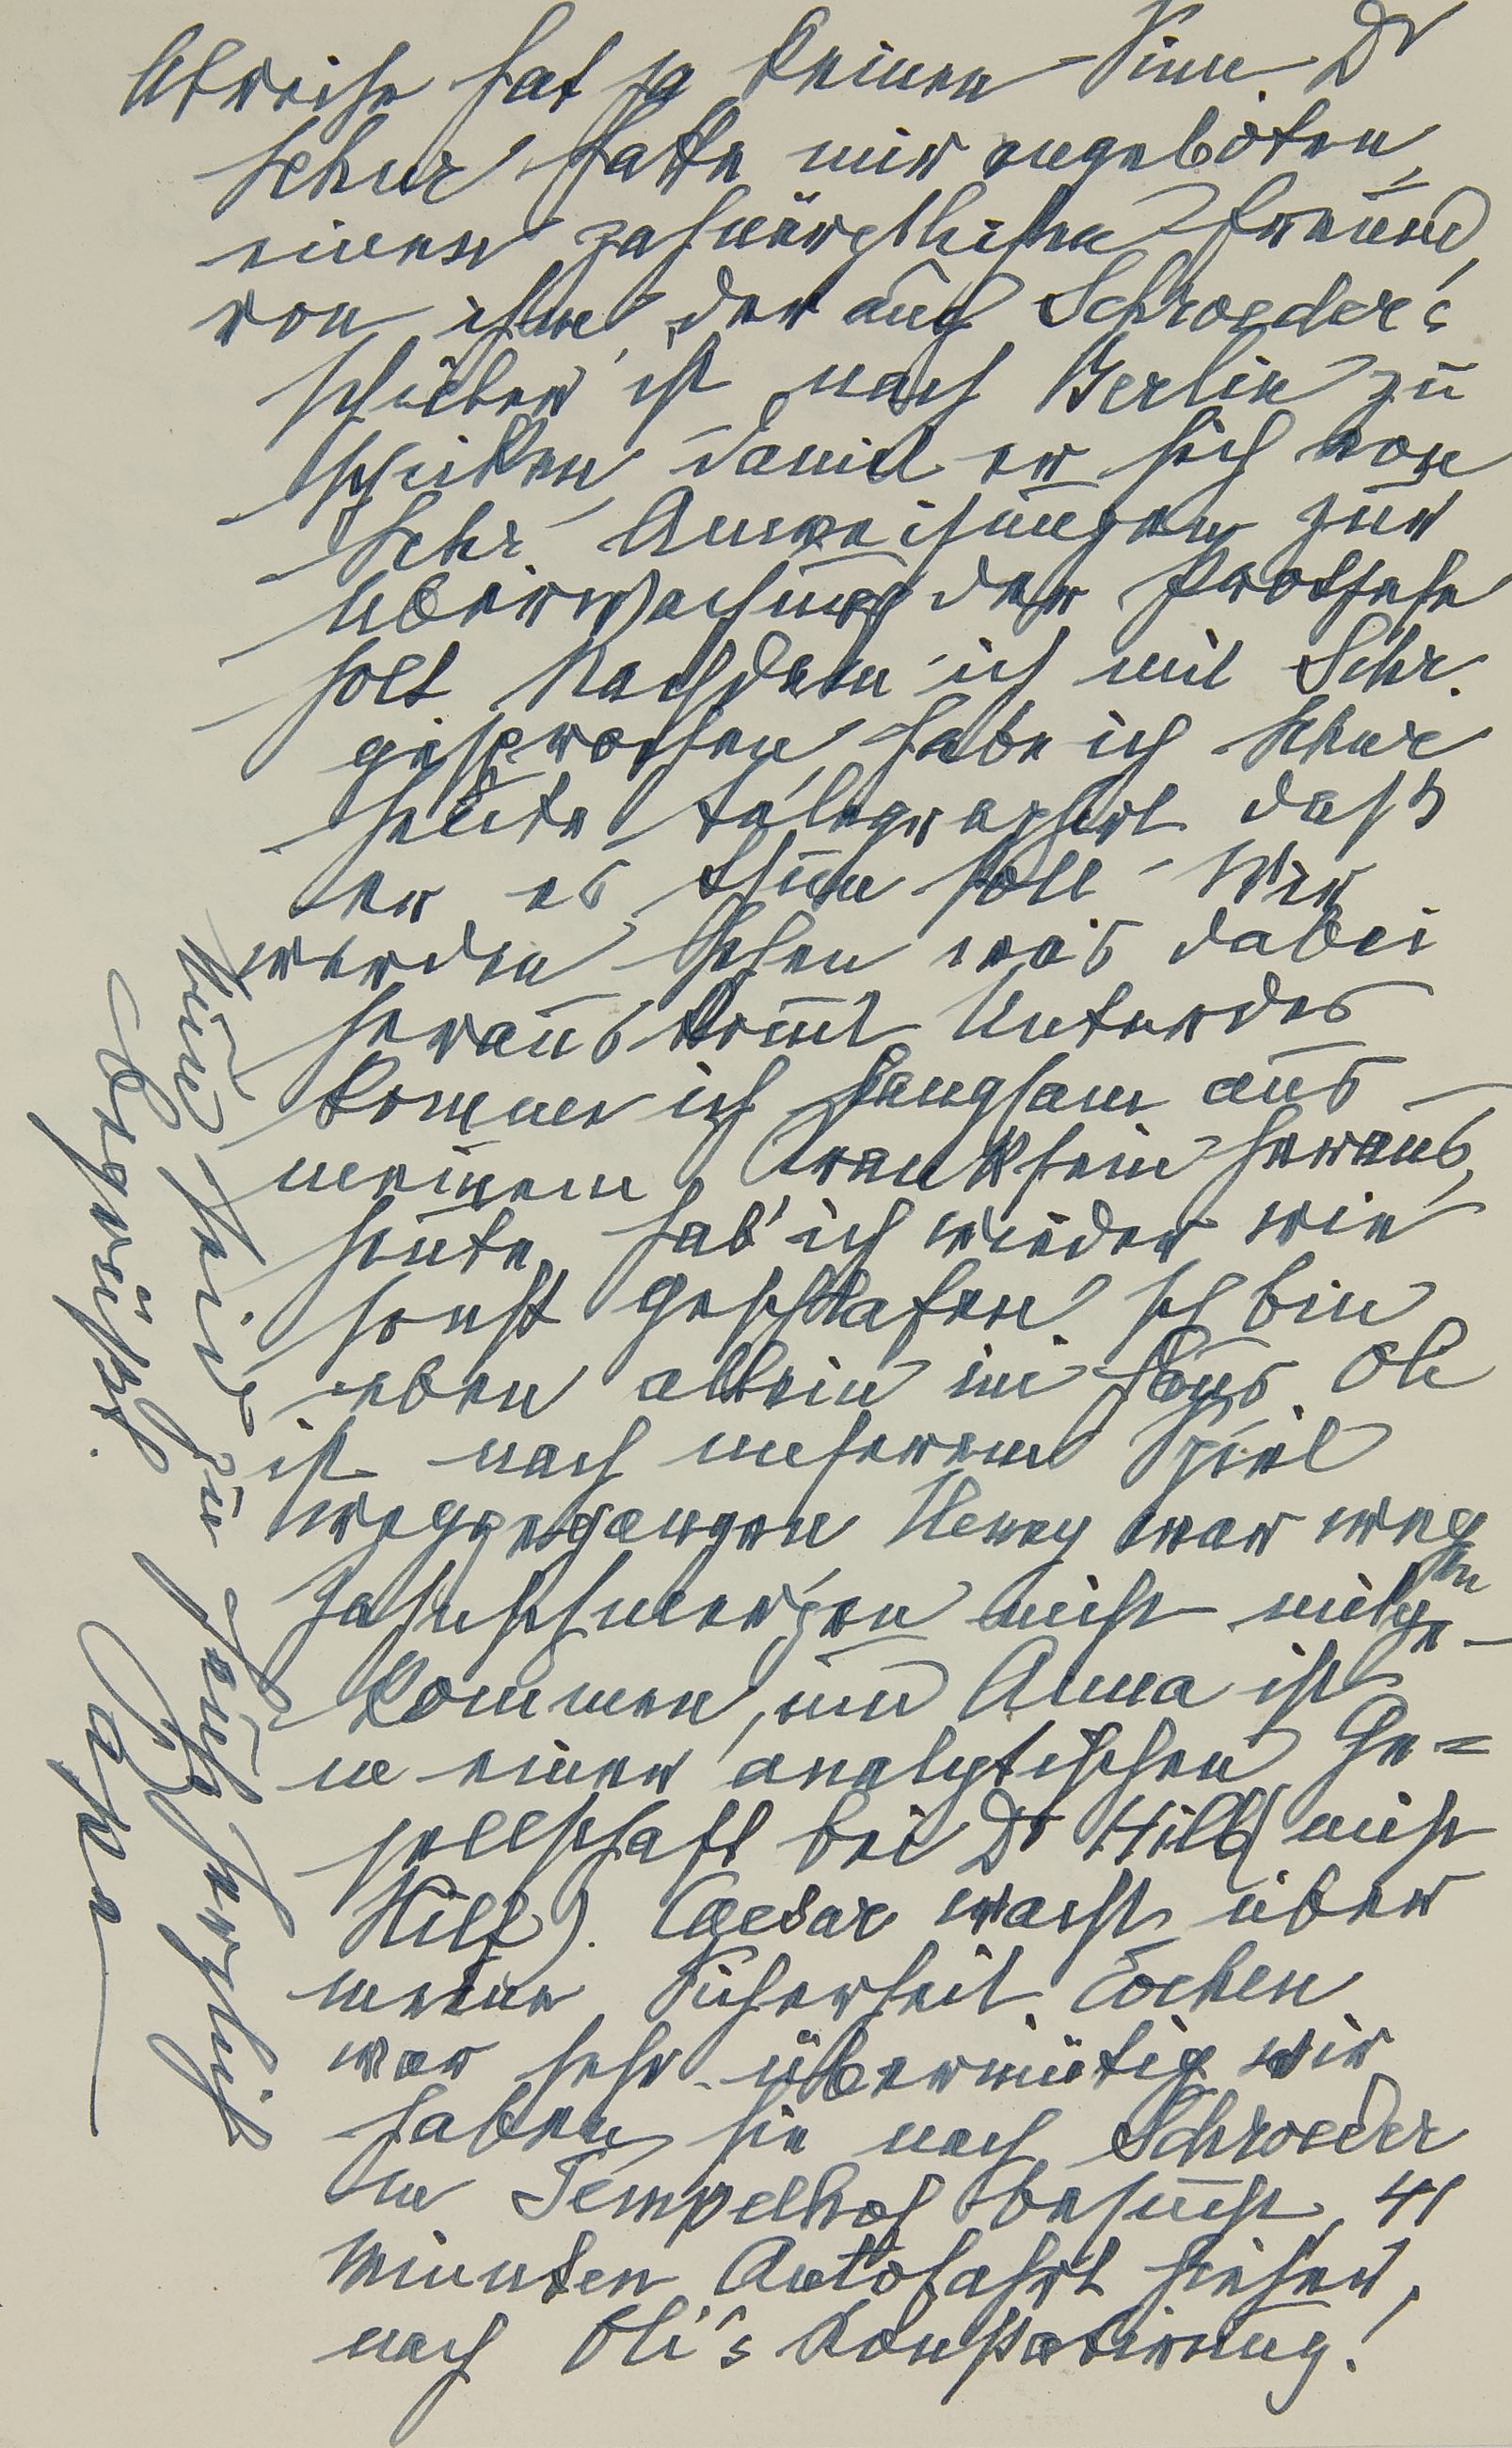 Abreise hat ja keinen Sinn. Dr
Schur hatte mir angeboten,
einen zahnärztlichen Freund
von ihm, der auch Schroeder's
Schüler ist nach Berlin zu
schicken, damit er sich von
Schr. Anweisungen zur
Überwachung der Prothese
holt. Nachdem ich mit Schr.
gesprochen, habe ich Schur
heute telegraphirt daß
er es thun soll. Wir
werden sehen was dabei
herauskom̅t. Unterdes
komme ich langsam aus
meinem Kranksein heraus,
heute hab' ich wieder wie
sonst geschlafen. Ich bin
eben allein im Haus. Oli
ist nach unserem Spiel
weggegangen Henny war weg
Zahnschmerzen nicht mitge-
en
kommen, und Anna ist
in einer analytischen Ge=
sellschaft bei Dr Hill (nicht
Hilf). Caesar wacht über
meine Sicherheit.
war sehr übermütig wir
haben sie nach Schroeder
in Tempelhof besucht, 41
Minuten Autofahrt hieher,
nach Oli's Konstatirung!
Nun seid Ihr
herzlich
begrüßt.
Papa